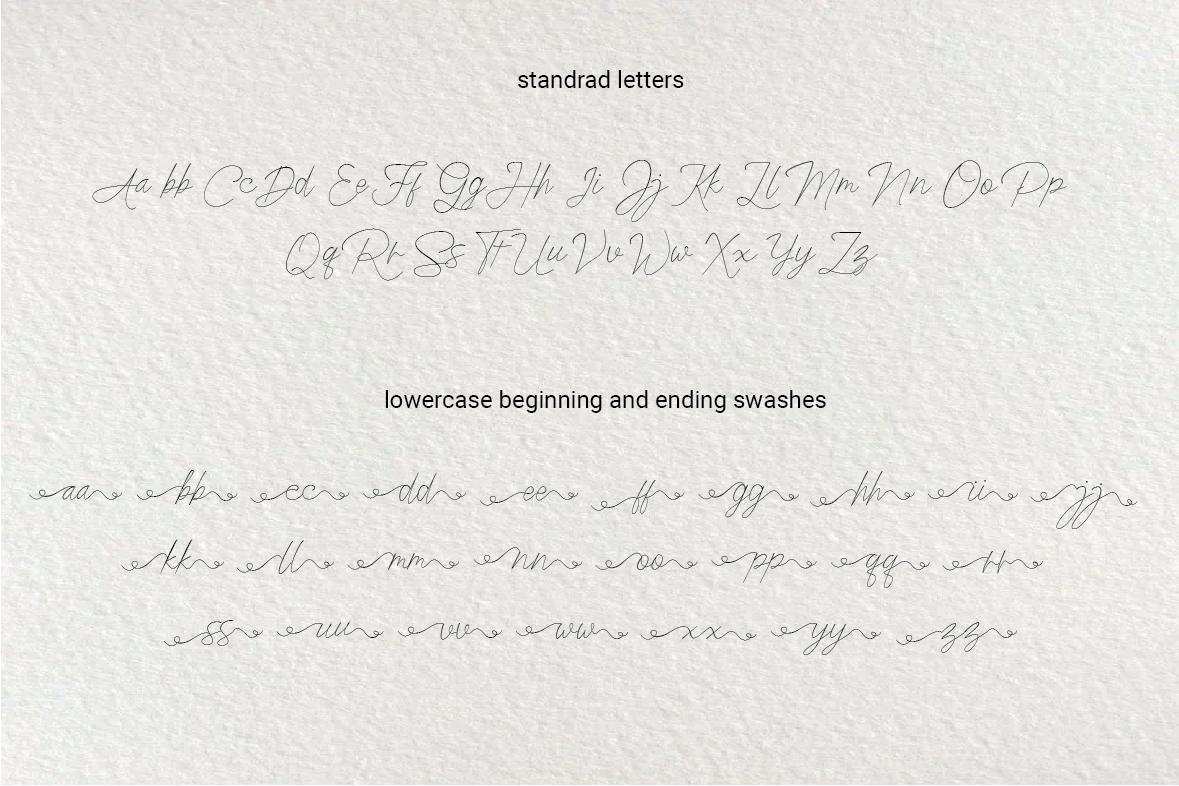 standrad letters
Aa bb Cc Dd Ee Ff Gg Hh Ii Jj Kk Ll Mm Nn Oo Pp
Qq Rr Ss Tt Uu Vv Ww Xx Yy Zz
lowercase beginning and ending swashes
aa bb cc dd ee ff gg hh ii jj
kk ll mm nn oo pp qq tt
ss uu vv ww xx yy zz